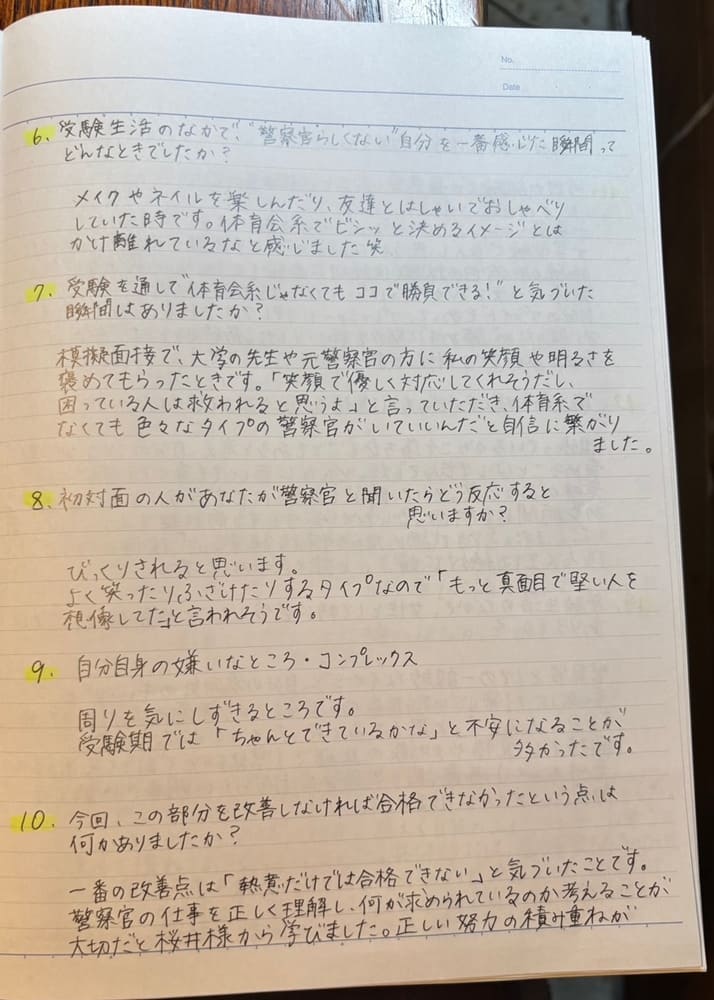 No.
Date
6. 受験生活のなかで、"警察官らしくない"自分を一番感じた瞬間って
どんなときでしたか?
メイクやネイルを楽しんだり、友達とはしゃいでおしゃべり
していた時です。体育会系でビシッと決めるイメージとは
かけ離れているなと感じました笑
7. 受験を通して"体育会系じゃなくてもココで勝負できる!"と気づいた
瞬間はありましたか?
模擬面接で、大学の先生や元警察官の方に私の笑顔や明るさを
褒めてもらったときです。「笑顔で優しく対応してくれそうだし、
困っている人は救われると思うよ」と言っていただき、体育系で
なくても色々なタイプの警察官がいていいんだと自信に繋がり
ました。
8. 初対面の人があなたが警察官と聞いたらどう反応すると
思いますか?
びっくりされると思います。
よく笑ったりふざけたりするタイプなので「もっと真面目で堅い人を
想像してた」と言われそうです。
9. 自分自身の嫌いなところ・コンプレックス
周りを気にしすぎるところです。
受験期では「ちゃんとできているかな」と不安になることが
多かったです。
10. 今回、この部分を改善しなければ合格できなかったという点は
何かありましたか?
一番の改善点は「熱意だけでは合格できない」と気づいたことです。
警察官の仕事を正しく理解し、何が求められているのか考えることが
大切だと桜井様から学びました。正しい努力の積み重ねが